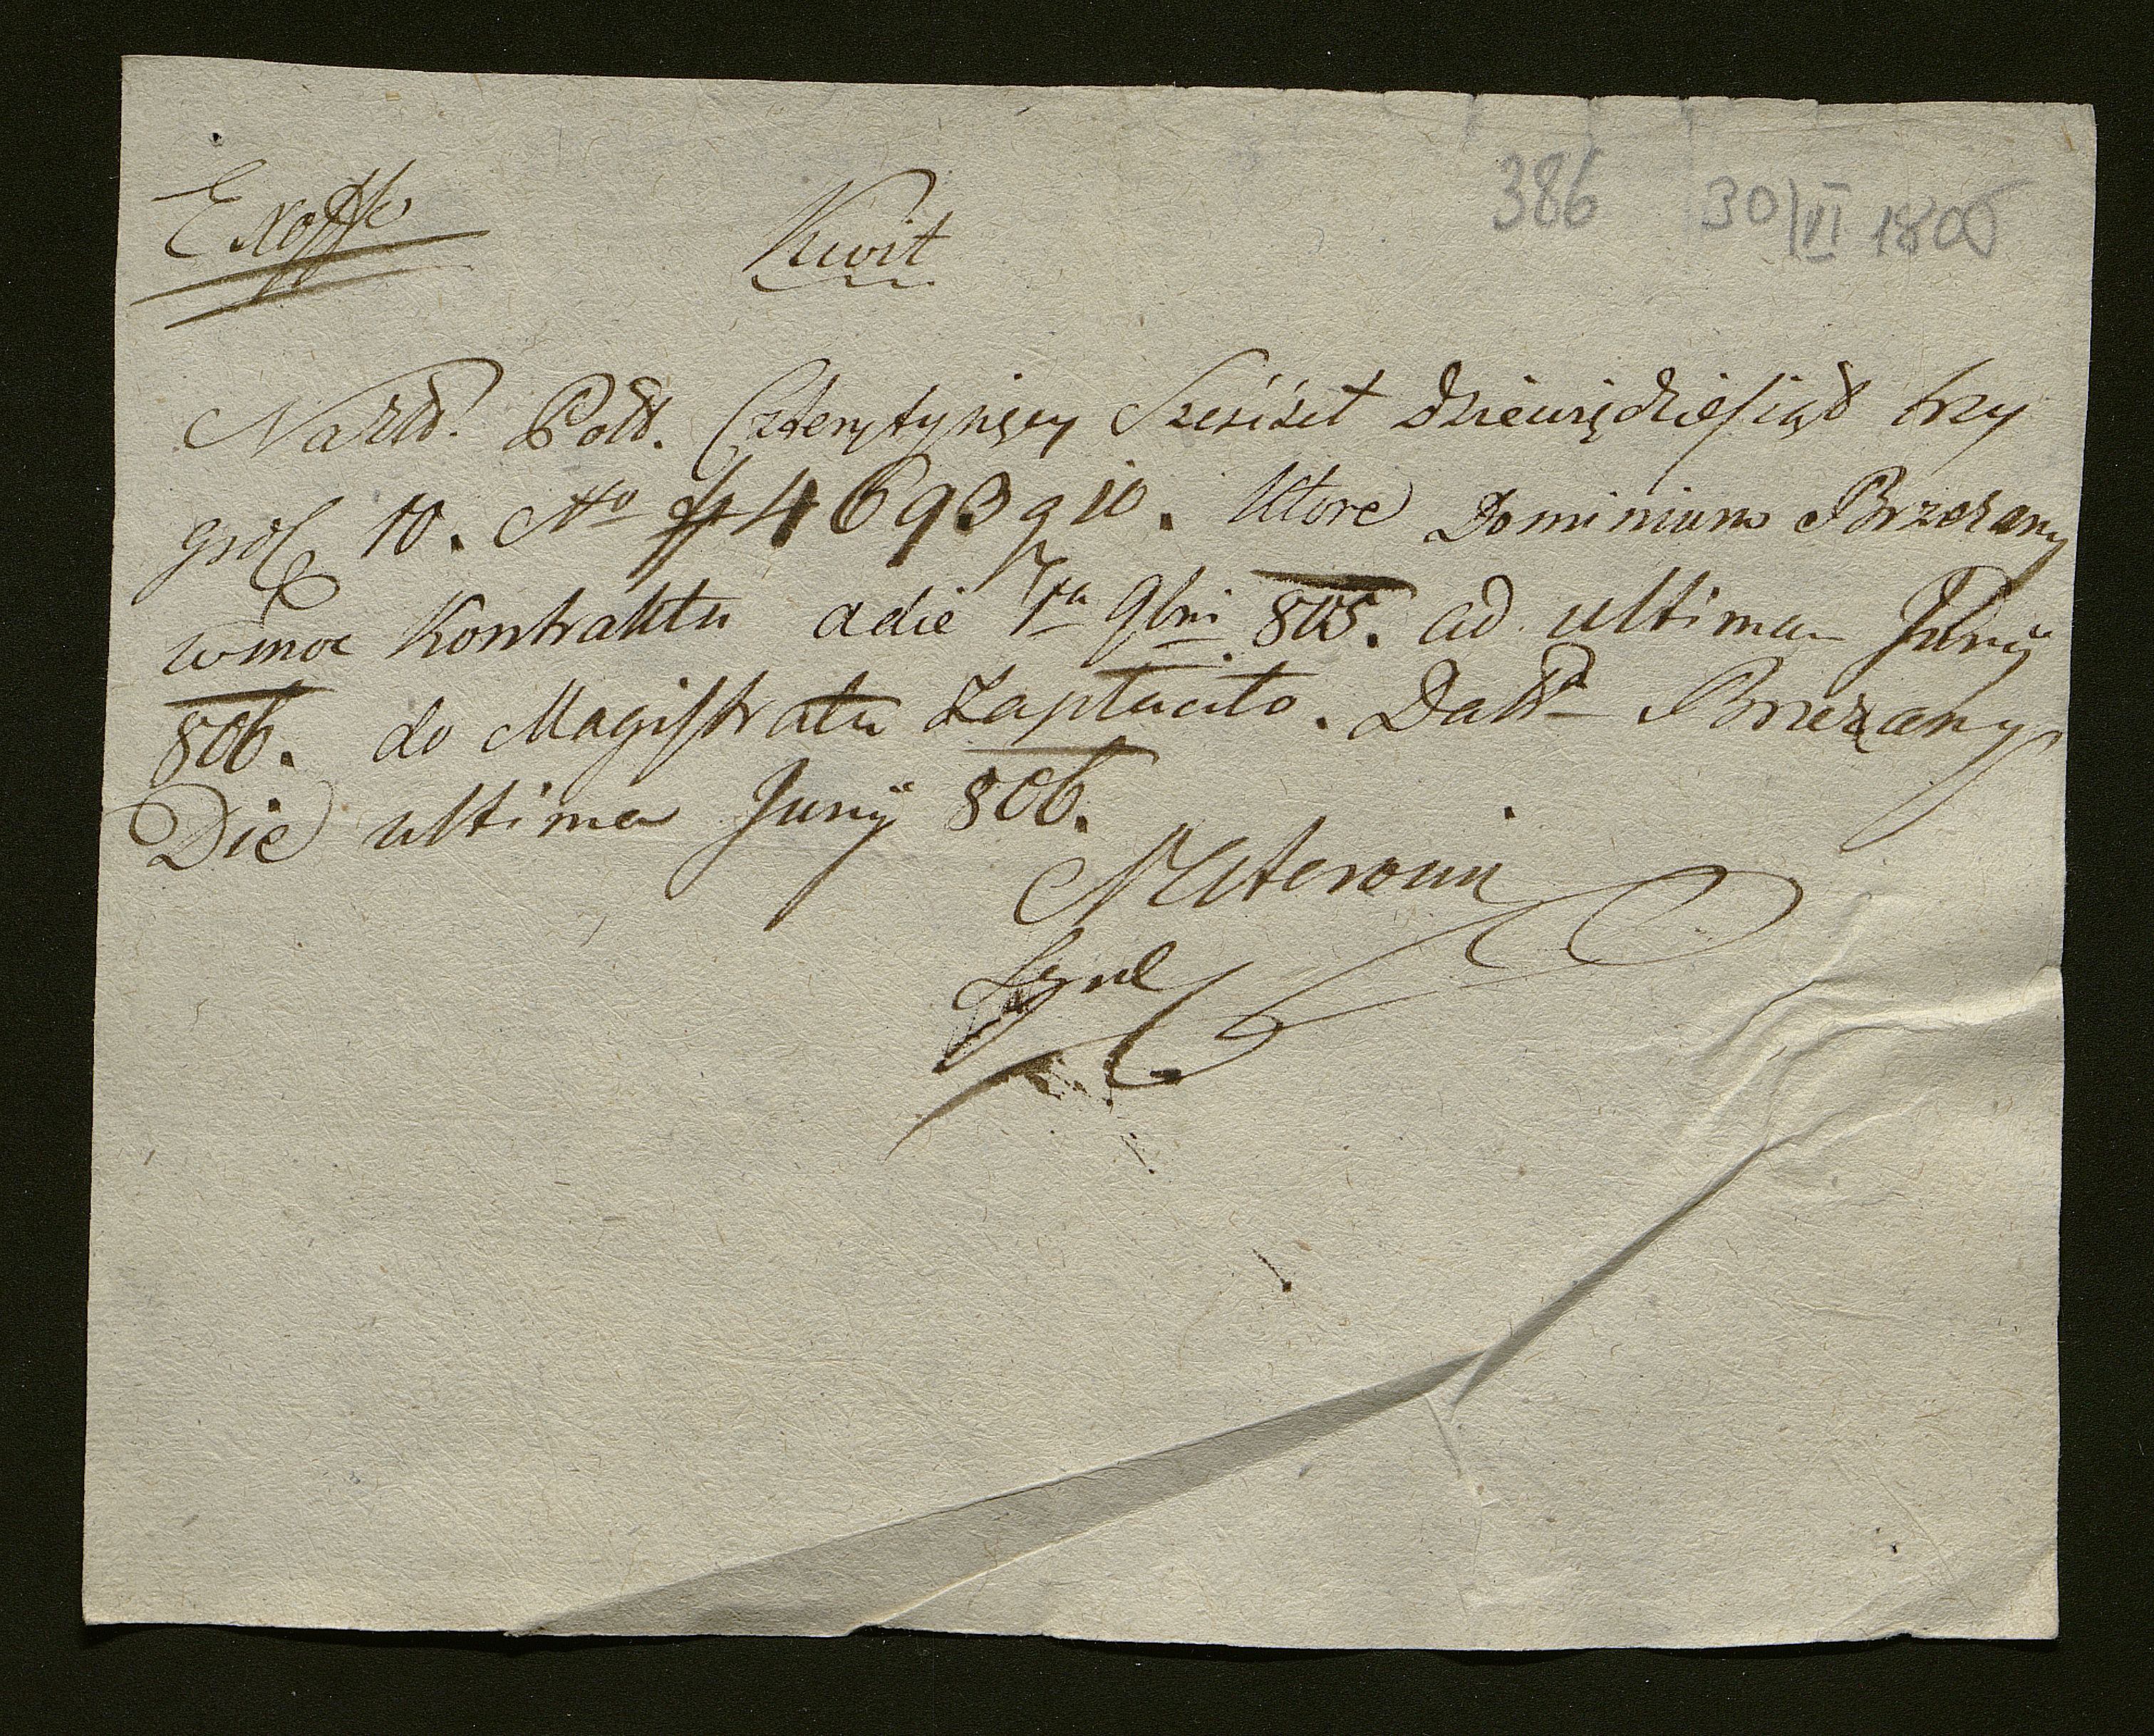 Exoffo
Kwit
386 30/VI 1806
Na Złd. Pold. Czterytysięcy Sześćset dziewiędziesiąd trzy
gros 10. No 4693 g 10. które Dominium Brzezany
w moc Kontraktu a die 1ma 9bri 805. ad ultima Junÿ
806. do Magistratu zapłaciło. Datt Brzezany
Die ultima Junÿ 806.